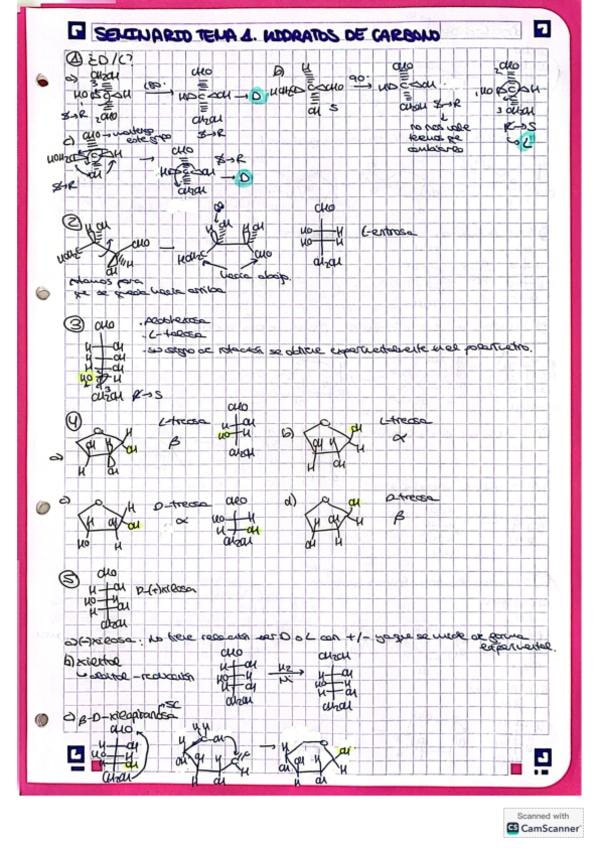 SEMINARIO TEMA 1. HIDRATOS DE CARBONO
① ¿D/L?
a) CH2OH HO C H CHO 180º CHO HO C OH CH2OH → D
S→R
b) H HOH2C C CHO OH S 90º → CHO HO C OH CH2OH S→R
no nos vale
tenemos que
cambiarlo
CHO HO C H CH2OH R→S
↳ L
c) CHO → mantengo
este grupo
HOH2C C H → CHO HO C CH2OH S→R → D
S→R
② H OH HOH2C CHO OH H → H OH OH HOH2C CHO CHO HO H HO H CH2OH L-eritrosa
hacia abajo.
rotamos para
que se queda hacia arriba
③ CHO
H OH
H OH
H OH
HO H
CH2OH R→S
· Aldohexosa
· L-talosa
· Su signo de rotación se obtiene experimentalmente en el polarímetro.
④
a) O H OH OH H H OH L-treosa β
CHO H OH HO H CH2OH
b) O OH H OH H H OH L-treosa α
c) O H OH H OH HO H D-treosa α
CHO HO H H OH CH2OH
d) O OH H H OH OH H D-treosa β
⑤ CHO
H OH
HO H
H OH
CH2OH
D-(+)xilosa
a) (-)xilosa: No tiene relación ser D o L con +/- ya que se mide de forma
experimental.
b) xilitol
↳ alditol - reducción
CHO H OH HO H H OH CH2OH H2 Ni CH2OH H OH HO H H OH CH2OH
c) β-D-xilopiranosa 5C
CHO H OH HO H H OH CH2OH
Scanned with
CS CamScanner